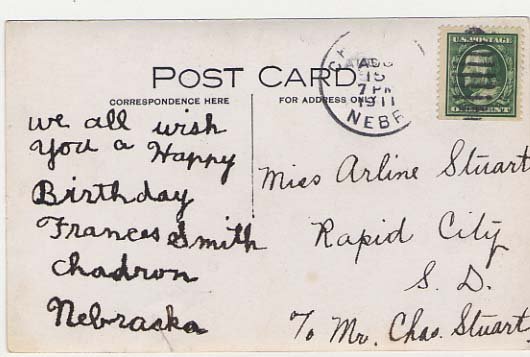 POST CARD
CORRESPONDENCE HERE
FOR ADDRESS ONLY
AUG
15
7 PM
1911
NEBR
U.S. POSTAGE
we all wish
you a Happy
Birthday
Frances Smith
Chadron
Nebraska
Miss Arline Stuart
Rapid City
S. D.
℅ Mr. Chas. Stuart